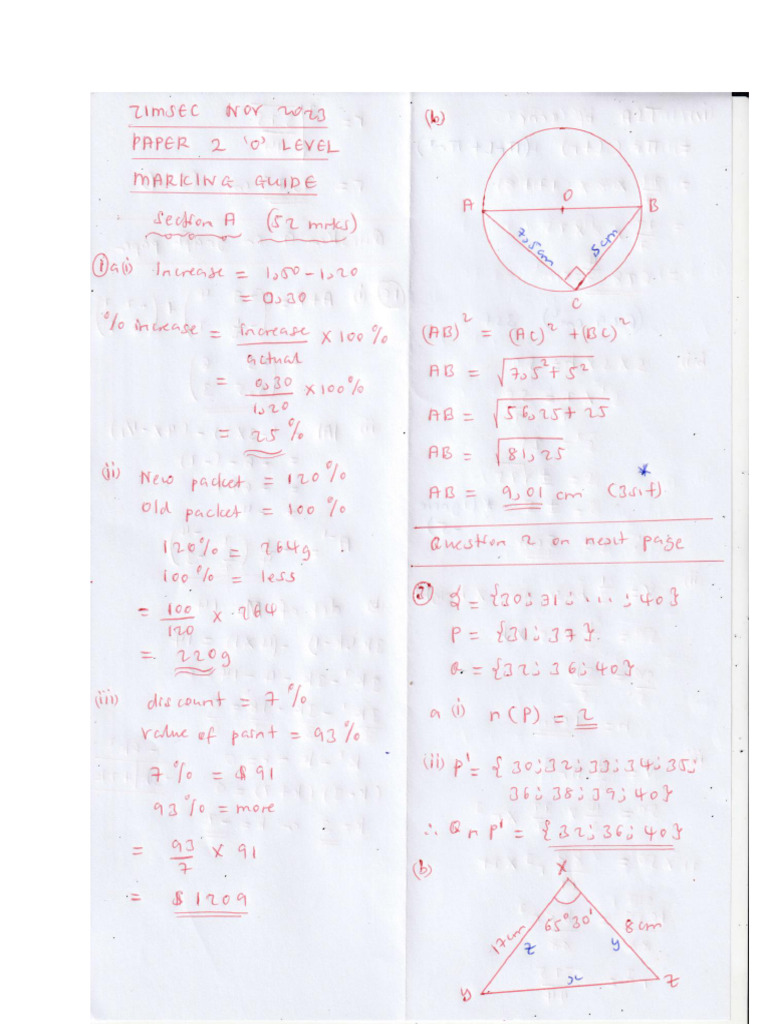 ZIMSEC NOV 2023
PAPER 2 'O' LEVEL
MARKING GUIDE
Section A (52 mrks)
① a(i) Increase = 1,50 - 1,20
= 0,30
% increase = Increase/actual × 100%
= 0,30/1,20 × 100%
= 25%
(ii) New packet = 120%
Old packet = 100%
120% = 264g
100% = less
= 100/120 × 264
= 220g
(iii) discount = 7%
value of paint = 93%
7% = $91
93% = more
= 93/7 × 91
= $1209
(b)
O
A
B
7,5cm
5cm
C
(AB)² = (AC)² + (BC)²
AB = √7,5² + 5²
AB = √56,25 + 25
AB = √81,25
AB = 9,01 cm (3sif)
Question 2 on next page
② ξ = {30; 31; ...; 40}
P = {31; 37}
Q = {32; 36; 40}
a (i) n(P) = 2
(ii) P' = {30; 32; 33; 34; 35;
36; 38; 39; 40}
∴ Q ∩ P' = {32; 36; 40}
(b)
X
65°30'
17cm
8cm
z
y
x
Y
Z